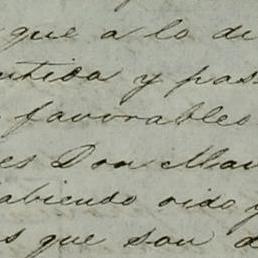 que a lo di
utida y pas
favorables
es Don Man
abiendo oido y
s que son d